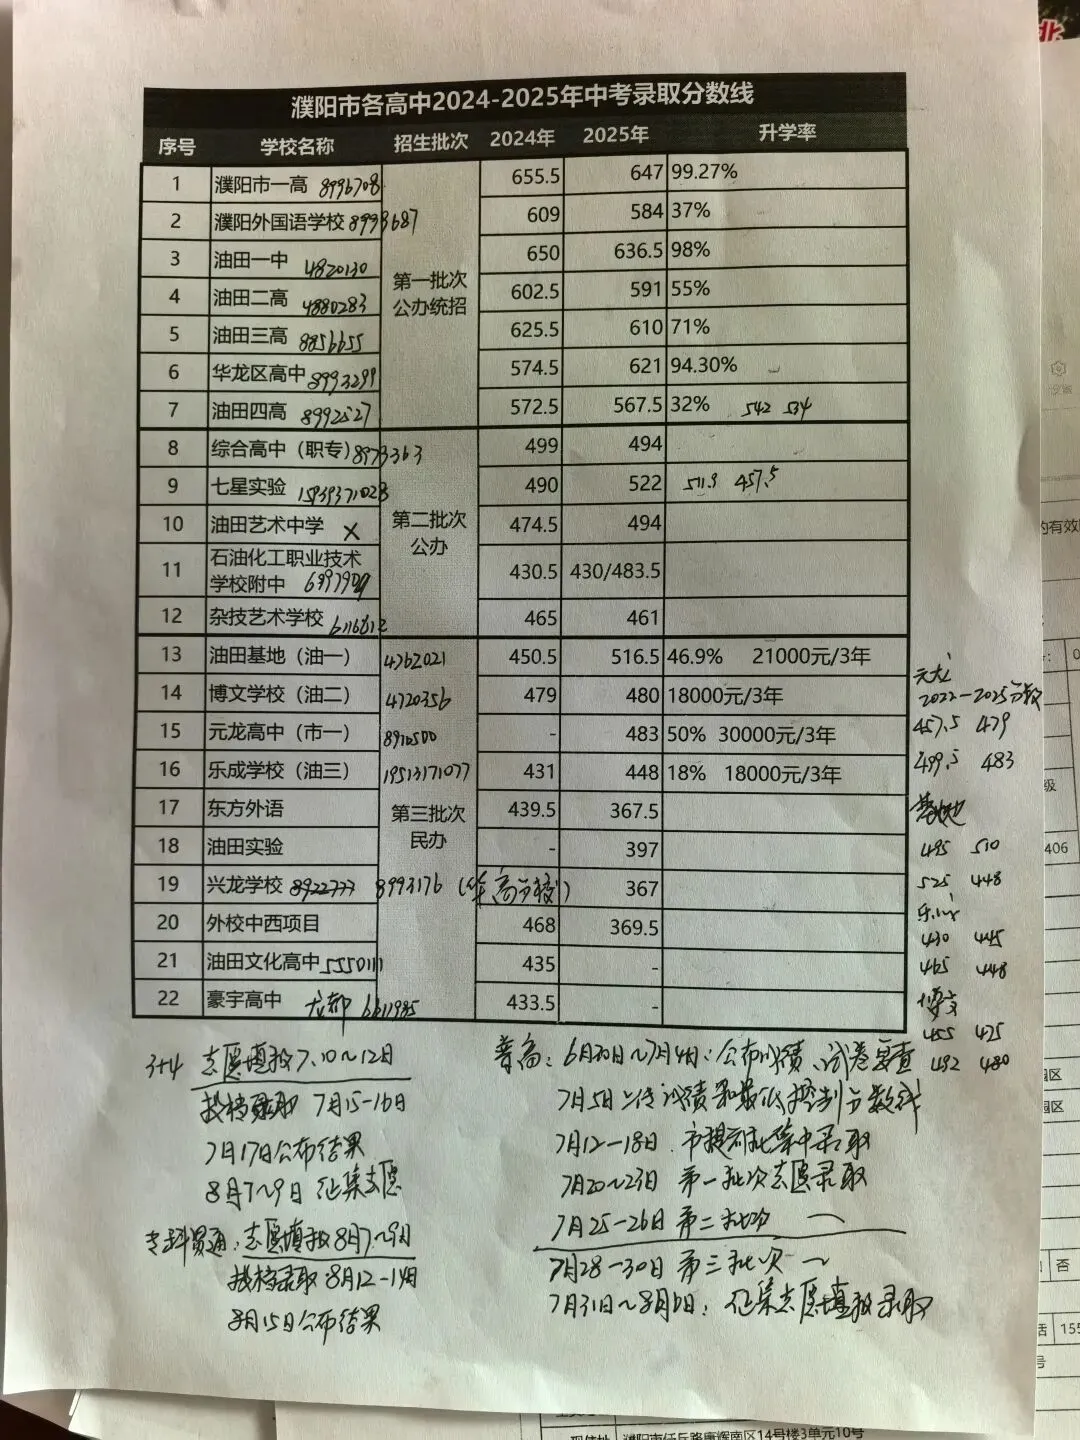 濮阳市各高中2024-2025年中考录取分数线
序号 学校名称 招生批次 2024年 2025年 升学率
1 濮阳市一高 8996708 655.5 647 99.27%
2 濮阳外国语学校 8993687 609 584 37%
3 油田一中 4820130 650 636.5 98%
第一批次
公办统招
4 油田二高 4880283 602.5 591 55%
5 油田三高 8856655 625.5 610 71%
6 华龙区高中 8993299 574.5 621 94.30%
7 油田四高 8992527 572.5 567.5 32% 542 534
8 综合高中（职专） 8973363 499 494
9 七星实验 15939371028 490 522 511.5 457.5
第二批次
公办
10 油田艺术中学 X 474.5 494
11 石油化工职业技术
学校附中 430.5 430/483.5
12 杂技艺术学校 465 461
13 油田基地（油一） 4762021 450.5 516.5 46.9% 21000元/3年
14 博文学校（油二） 4720356 479 480 18000元/3年
15 元龙高中（市一） 8910500 - 483 50% 30000元/3年
16 乐成学校（油三） 19513171077 431 448 18% 18000元/3年
第三批次
民办
17 东方外语 439.5 367.5
18 油田实验 - 397
19 兴龙学校 8922777 8993176（华高分校） 367
20 外校中西项目 468 369.5
21 油田文化高中 5550111 435 -
22 豪宇高中 龙都 6611985 433.5 -
元龙
2022-2025分数
457.5 479
499.5 483
基地
495 510
525 448
430 445
465 448
博文
455 475
492 480
3+4 志愿填报7.10~12日
投档录取 7月15-16日
7月17日公布结果
8月7~9日 征集志愿
专科贯通：志愿填报8月7~9日
投档录取 8月12-14日
8月15日公布结果
普高：6月30日~7月4日：公布成绩、试卷复查
7月5日上传成绩和最低控制分数线
7月12-18日 市提前批集中录取
7月20~23日 第一批次志愿录取
7月25-26日 第二批次 ～
7月28-30日 第三批次 ～
7月31日~8月1日：征集志愿填报录取
406
园区
否
155
号
现住址 濮阳市任丘路康辉南区14号楼3单元10号